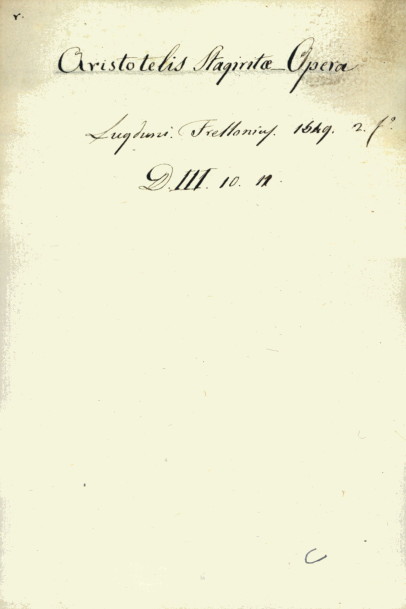 r.
Aristotelis Stagiritæ Opera
Lugduni. Frellonius. 1549. 2. fº
D.III. 10. 11.
C